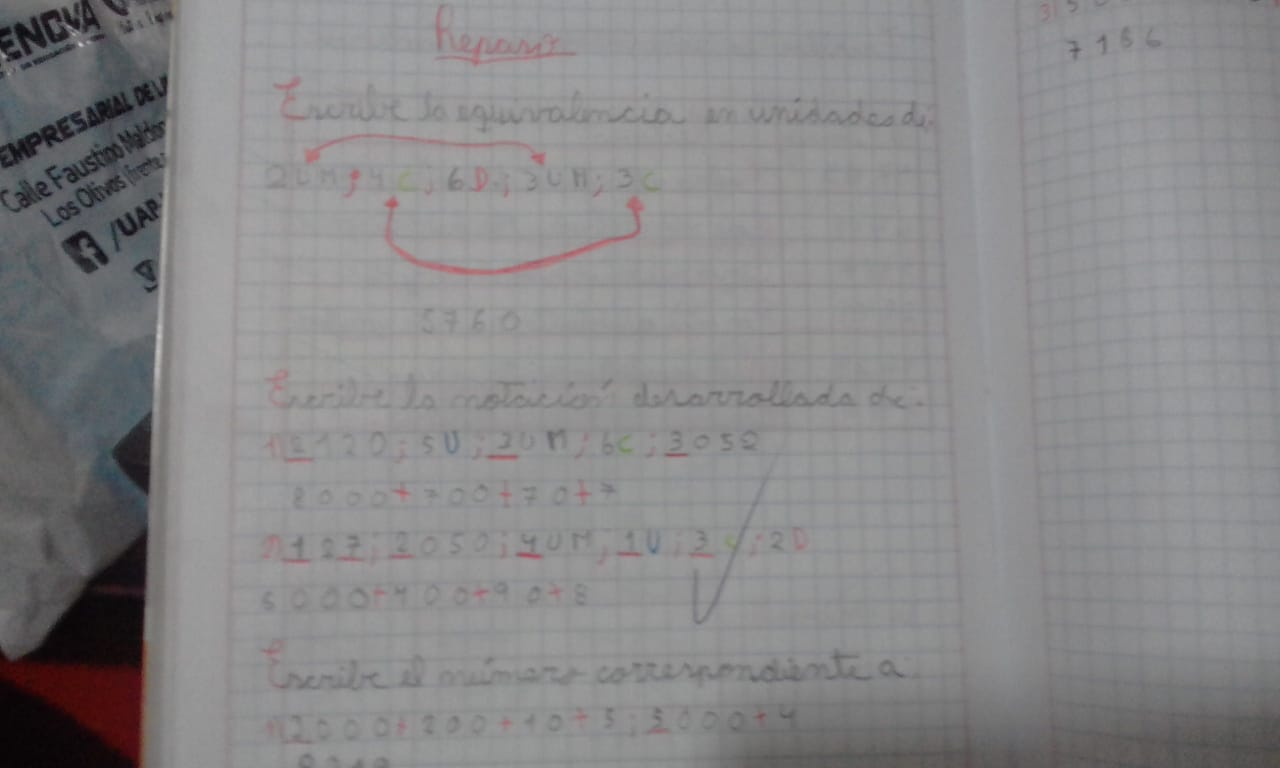 ENOVA
EMPRESARIAL DE LA
Calle Faustino Maldon
Los Olivos (frente
/UAP
Repaso
Escribe la equivalencia en unidades de:
2UM; 4C; 6D; 3UM; 3C
5760
Escribe la notación desarrollada de:
1) 5120; 5U; 2UM; 6C; 3052
8000+700+70+7
2) 127; 2050; 4UM; 1U; 3C; 2D
5000+400+90+8
Escribe el número correspondiente a
1) 2000+200+10+5; 5000+4
3)
7156